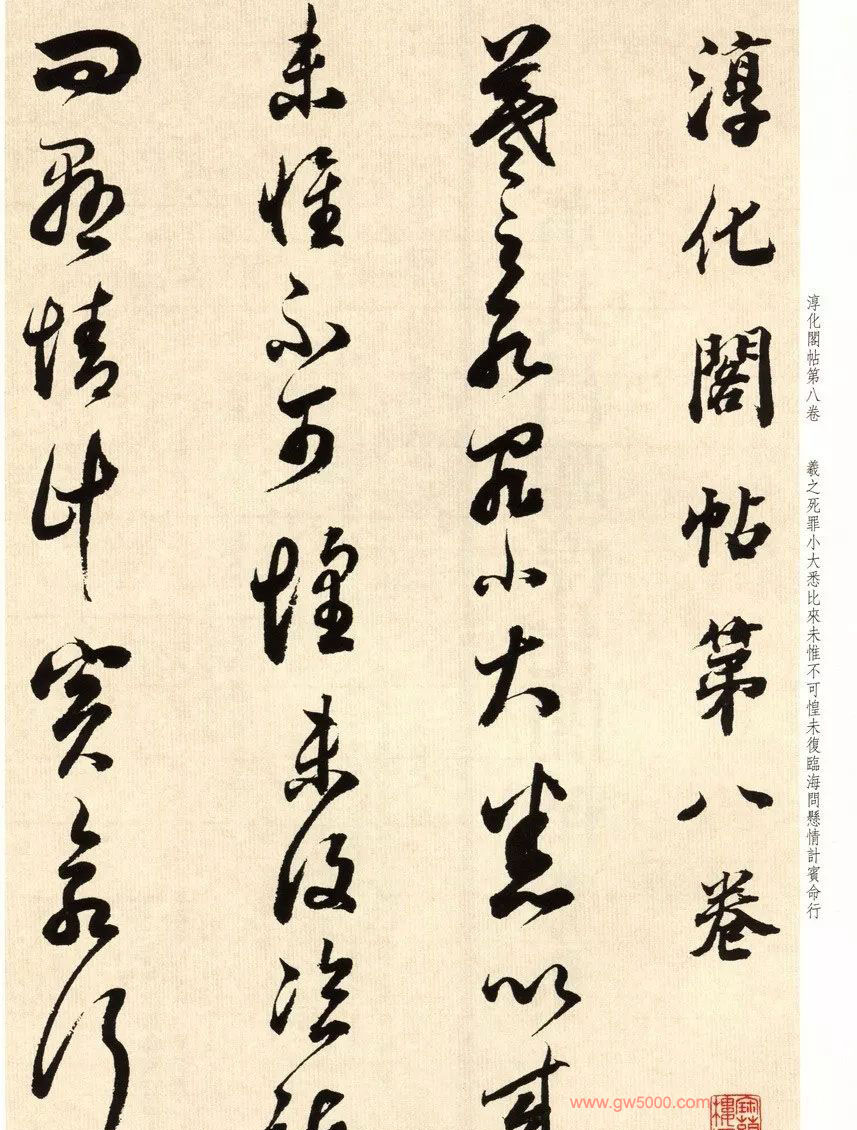 淳化閣帖第八卷
羲之死罪小大悉比來
未惟不可惶未復臨海
問懸情計賓命行
淳化閣帖第八卷 羲之死罪小大悉比來未惟不可惶未復臨海問懸情計賓命行
www.gw5000.com